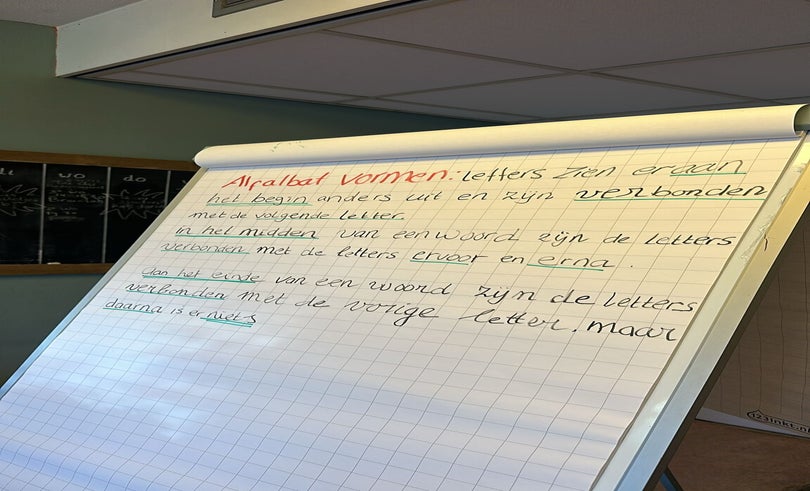 Alfalbat Vormen: letters zien er aan
het begin anders uit en zijn verbonden
met de volgende letter.
in het midden van een woord zijn de letters
verbonden met de letters ervoor en erna.
aan het einde van een woord zijn de letters
verbonden met de vorige letter, maar
daarna is er niets
wo do
123inkt.nl